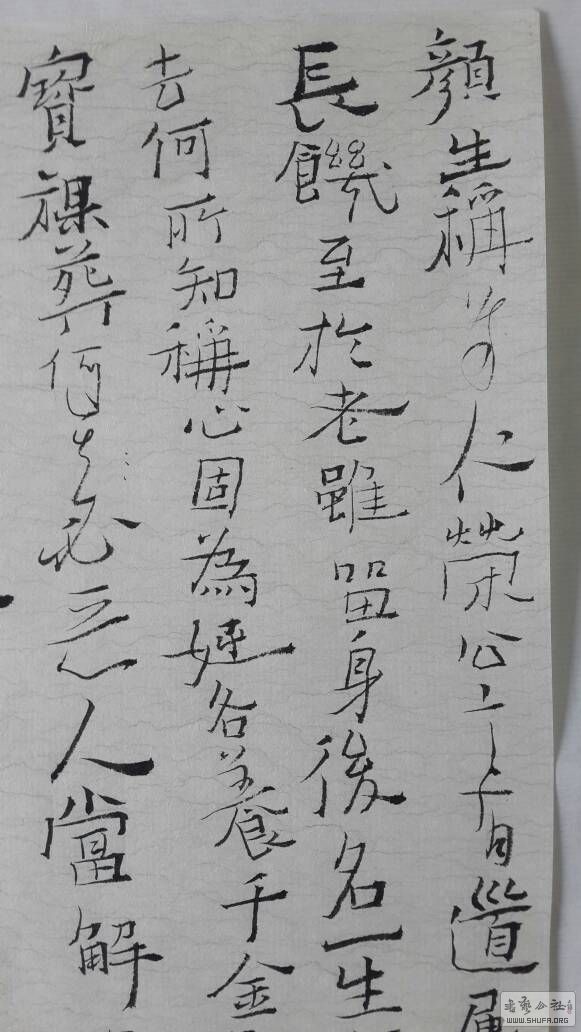 顏生稱為仁榮公言有道屢
長飢至於老雖畱身後名一生
去何所知稱心固為好客養千金
寶裸葬何必惡人當解
www.shufa.org